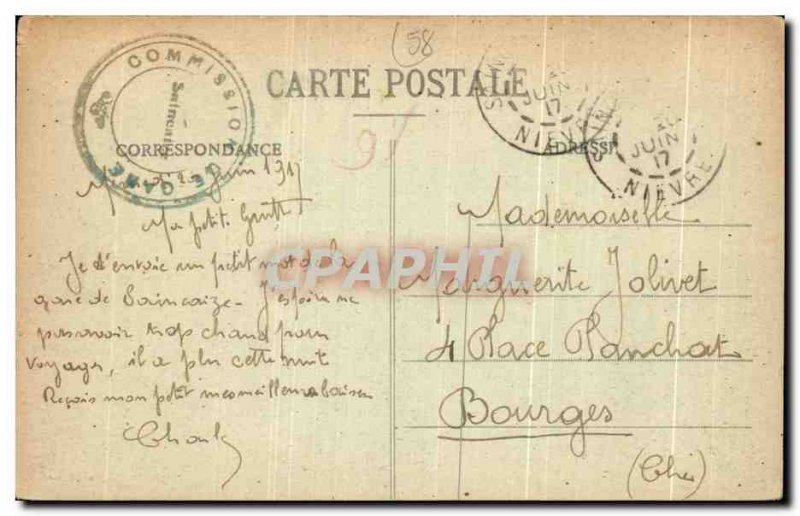 58
COMMISSION DE GARE
CARTE POSTALE
JUIN
17
NIEVRE
JUIN
17
NIEVRE
CORRESPONDANCE
ADRESSE
91
Juin 1917
Ma petite
Je t'envoie un petit mot de la
gare de Saincaize - J'espère ne
pas avoir trop chaud pour
voyager, il a plu cette nuit
Reçois mon petit mes meilleurs baisers
Mademoiselle
Marguerite Jolivet
4 Place Planchat
Bourges
(Cher)
CPAPHIL